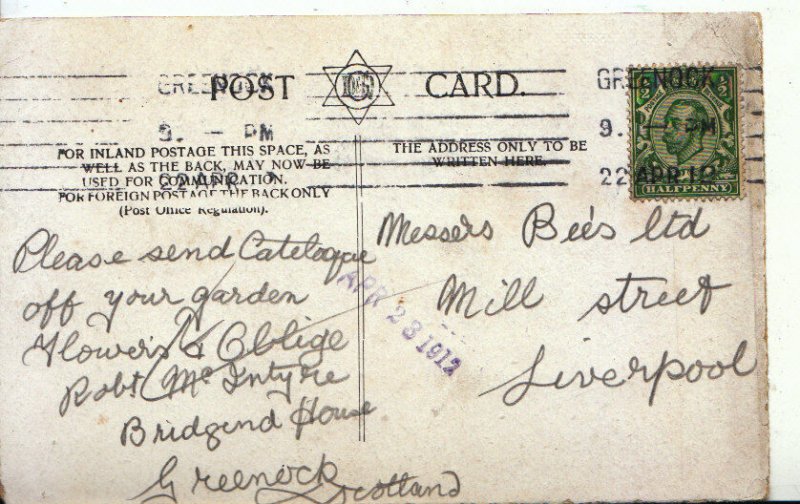 POST CARD.
GREENOCK
9. — PM
22 APR 1
GREENOCK
9. — PM
22 APR 12
HALFPENNY
FOR INLAND POSTAGE THIS SPACE, AS
WELL AS THE BACK, MAY NOW BE
USED FOR COMMUNICATION.
FOR FOREIGN POSTAGE THE BACK ONLY
(Post Office Regulation).
THE ADDRESS ONLY TO BE
WRITTEN HERE.
Please send Catelogue
off your garden
Flowers & Oblige
Robt McIntyre
Bridgend House
Greenock
Scotland
APR 23 1912
Messers Bees Ltd
Mill street
Liverpool